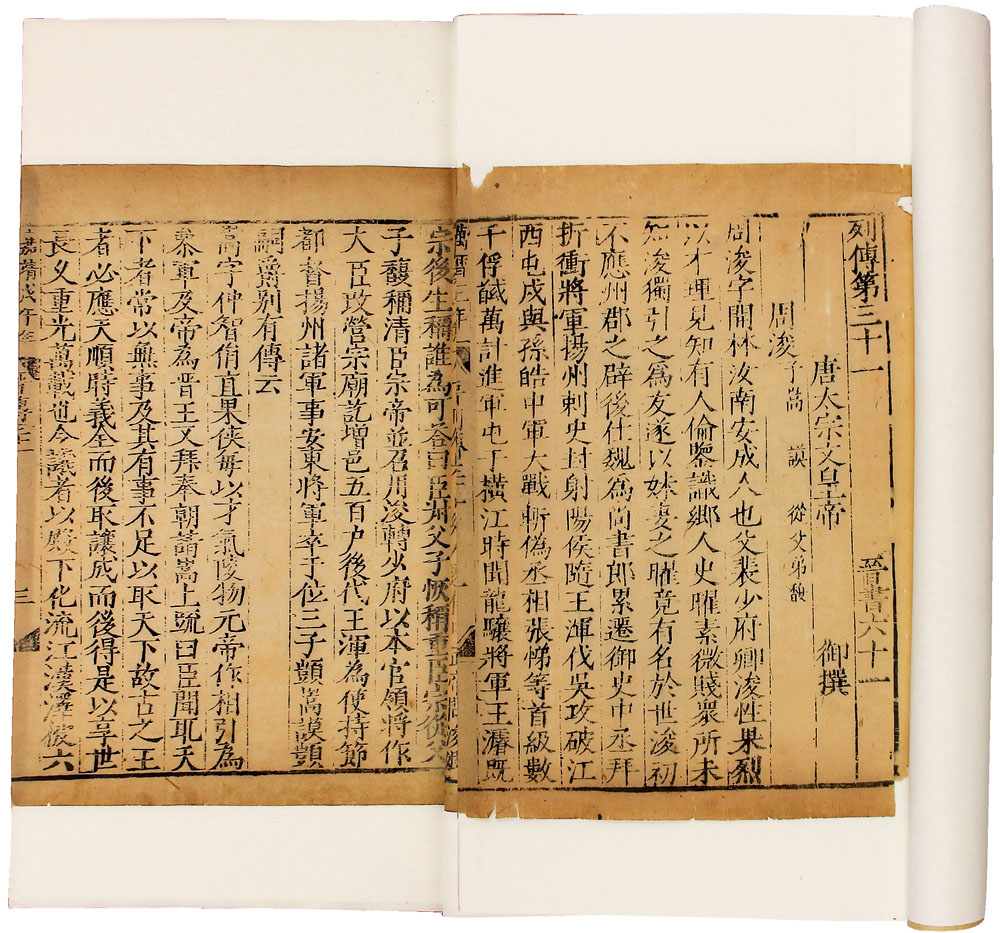 列傳第三十一 晉書六十一
唐太宗文皇帝 御撰
周浚 子嵩 謨 從父弟馥
周浚字開林汝南安成人也父裴少府卿浚性果烈
以才理見知有人倫鑒識鄉人史曜素微賤衆所未
知浚獨引之爲友遂以妹妻之曜竟有名於世浚初
不應州郡之辟後仕魏爲尚書郎累遷御史中丞拜
折衝將軍揚州刺史封射陽侯隨王渾伐吳攻破江
西屯戍與孫皓中軍大戰斬偽丞相張悌等首級數
千俘馘萬計進軍屯于橫江時聞龍驤將軍王濬既
萬曆三年
宗後生稱誰為可荅曰臣叔父子恢稱重臣宗從父
子馥稱清臣宗帝並召用浚轉少府以本官領將作
大臣改營宗廟訖增邑五百户後代王渾為使持節
都督揚州諸軍事安東將軍卒于位三子顗嵩謨顗
嗣爵别有傳云
嵩字仲智狷直果俠每以才氣陵物元帝作相引為
參軍及帝為晉王又拜奉朝請嵩上疏曰臣聞取天
下者常以無事及其有事不足以取天下故古之王
者必應天順時義全而後取讓成而後得是以享世
長久重光萬載也今議者以殿下化流江漢澤被六
嘉靖戊午年 三